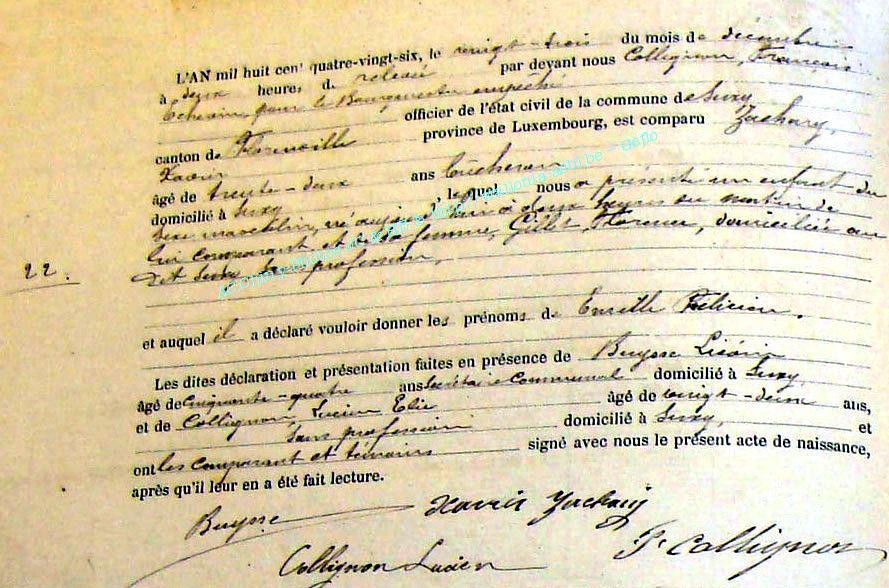 L'AN mil huit cent quatre-vingt-six, le vingt-trois du mois de décembre
à deux heures de relevée par devant nous Collignon, François
Échevin, pour le Bourgmestre empêché
officier de l'état civil de la commune de Suxy
canton de Florenville province de Luxembourg, est comparu Zachary,
Xavier
âgé de trente-deux ans bûcheron
domicilié à Suxy, lequel nous a présenté un enfant du
sexe masculin, né aujourd'hui à deux heures du matin de
lui comparant et de sa femme, Gillet, Florence, domiciliée au
dit Suxy, sans profession,
22.
et auquel il a déclaré vouloir donner les prénoms de Emille Félicien.
Les dites déclaration et présentation faites en présence de Buysse
âgé de cinquante-quatre ans secrétaire communal domicilié à Suxy,
et de Collignon, Lucien Elie âgé de vingt-deux ans,
sans profession domicilié à Suxy, et
ont les comparant et témoins signé avec nous le présent acte de naissance,
après qu'il leur en a été fait lecture.
Buysse Xavier Zachary
Collignon Lucien F. Collignon